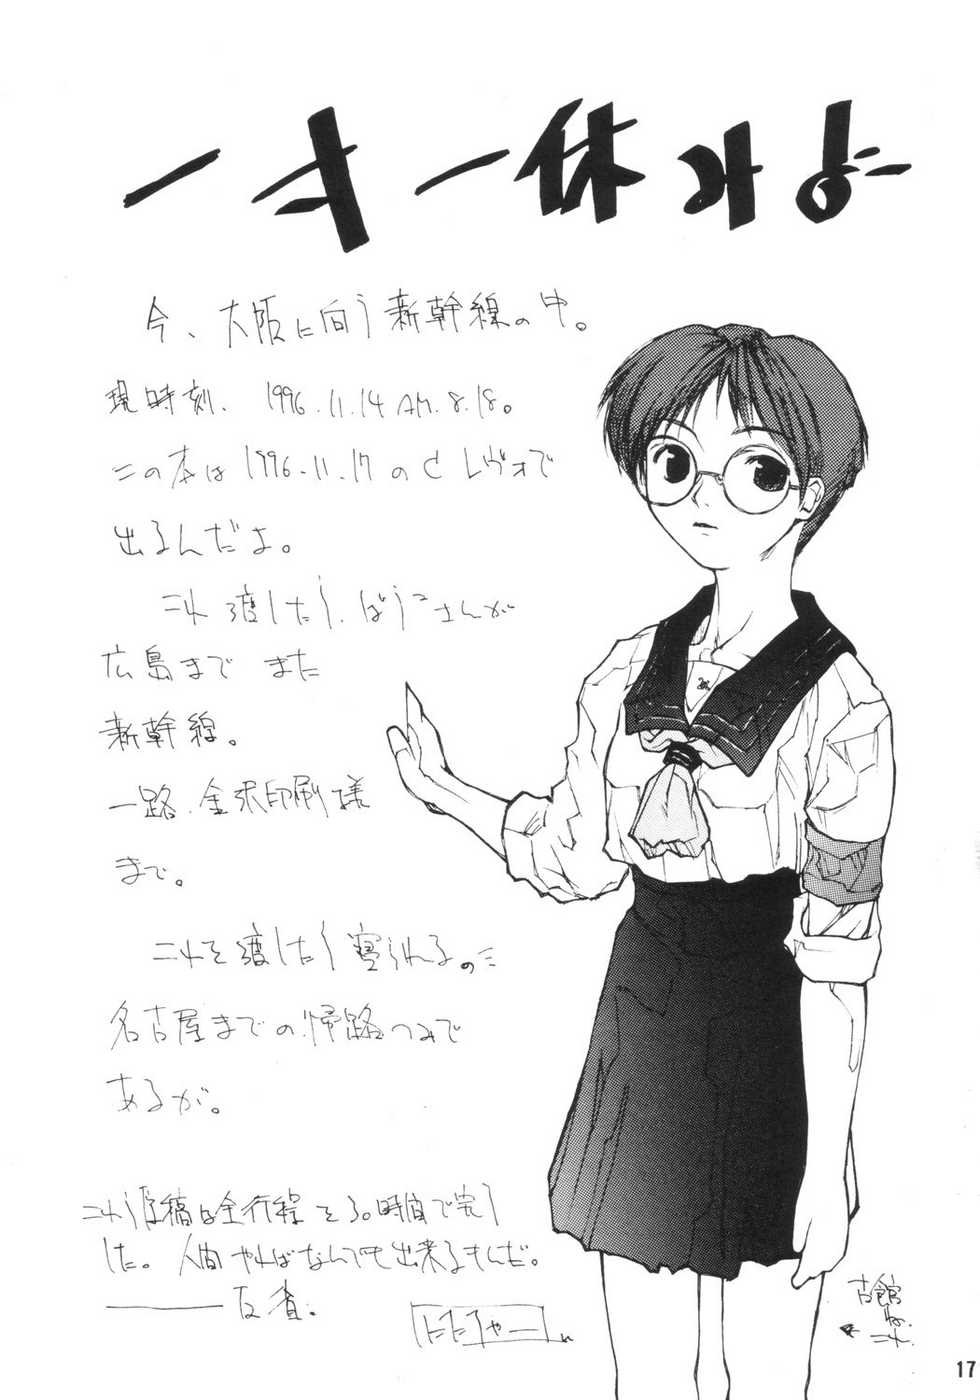 今、大阪に向う新幹線の中。
現時刻、1996.11.14 AM.8.18。
この本は1996.11.17のCレヴォで
出るんだよ。
これ渡したら、ぼうこさんが
広島までまた
新幹線。
一路、金沢印刷様
まで。
これを渡したら寝られるのに
名古屋までの帰路つみで
あるが。
これら原稿は全行程を30時間で完了
した。人間やればなんでも出来るもんだ。
――― 反省。
古館
ね.
これ.
17